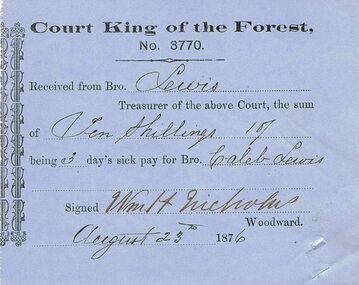 Court King of the Forest,
No. 3770.
Received from Bro. Lewis
Treasurer of the above Court, the sum
of Ten Shillings 10/
being 3 day's sick pay for Bro. Caleb Lewis
Signed Wm H Nicholas
Woodward.
August 23rd 1876